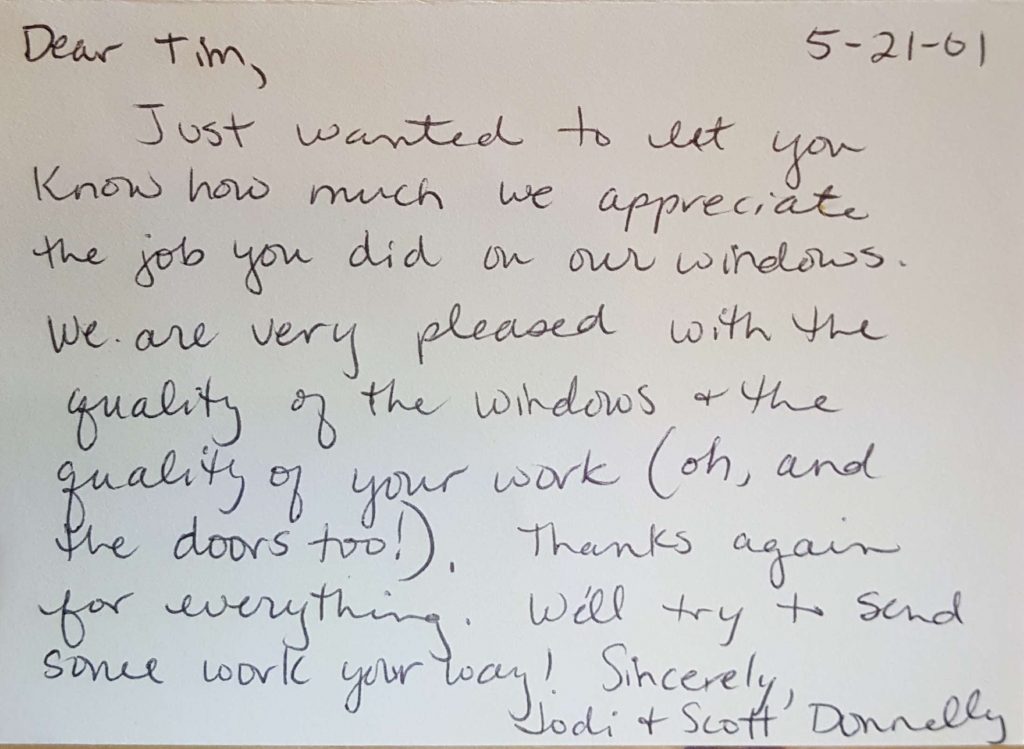 Dear Tim, 5-21-01
Just wanted to let you
know how much we appreciate
the job you did on our windows.
We are very pleased with the
quality of the windows + the
quality of your work (oh, and
the doors too!). Thanks again
for everything. We'll try to send
some work your way! Sincerely,
Jodi + Scott Donnelly